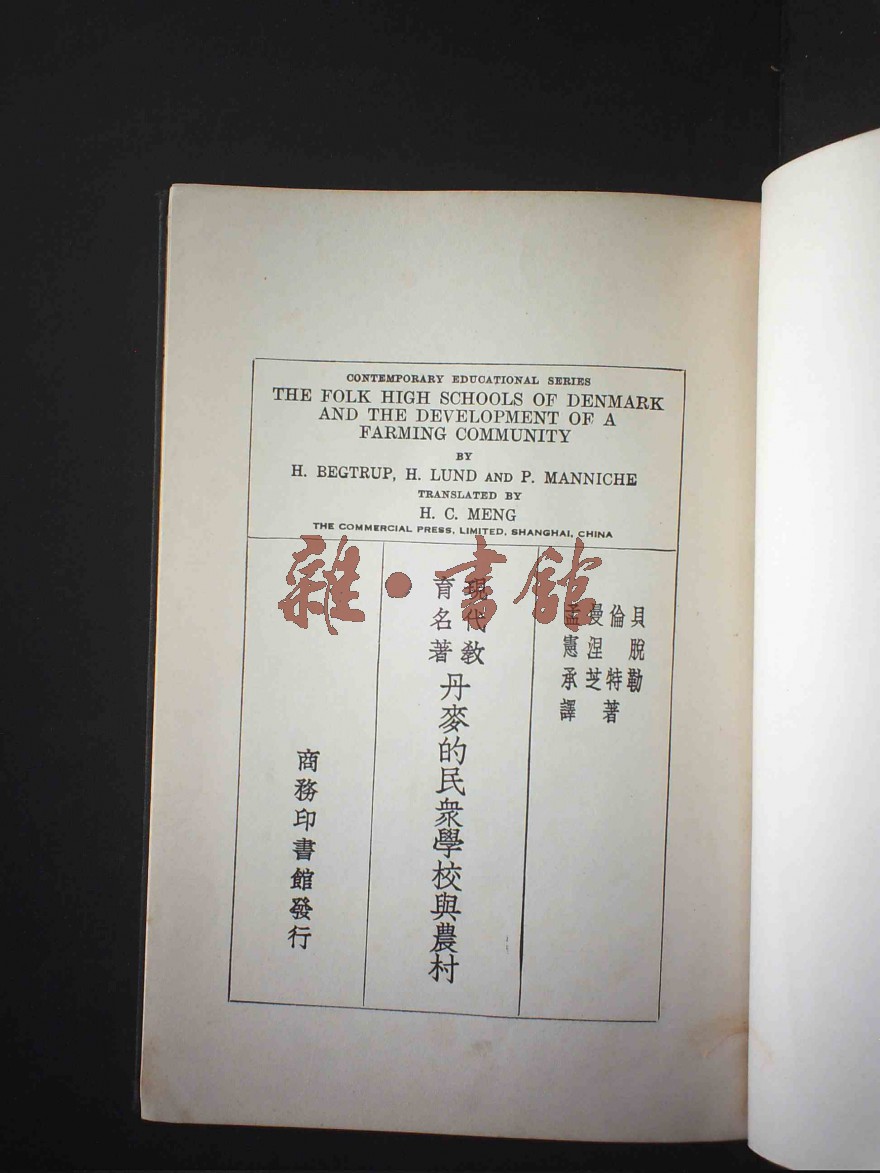 CONTEMPORARY EDUCATIONAL SERIES
THE FOLK HIGH SCHOOLS OF DENMARK
AND THE DEVELOPMENT OF A
FARMING COMMUNITY
BY
H. BEGTRUP, H. LUND AND P. MANNICHE
TRANSLATED BY
H. C. MENG
THE COMMERCIAL PRESS, LIMITED, SHANGHAI, CHINA
雜·書館
貝脫勒
倫特著
曼涅芝
孟憲承譯
現代教
育名著
丹麥的民衆學校與農村
商務印書館發行